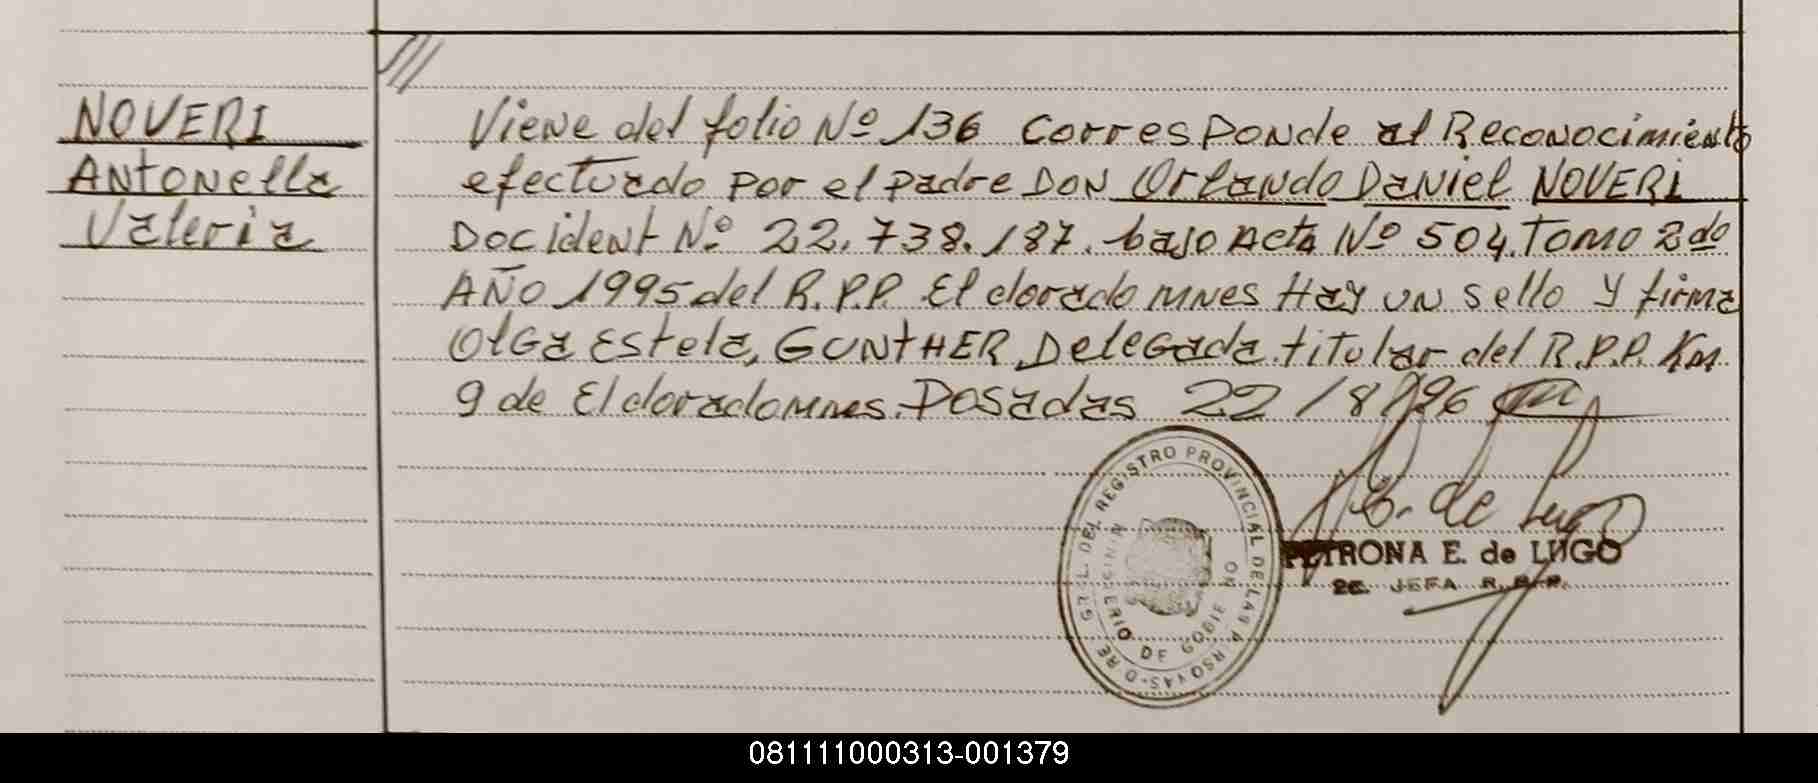 NOVERI
Antonella
Valeria
Viene del folio Nº 136 corresponde al Reconocimiento
efectuado por el padre DON Orlando Daniel NOVERI
Doc ident Nº 22.738.187. bajo Acta Nº 504. Tomo 2do
AÑO 1995 del R.P.P. Eldorado mnes Hay un sello y firma
Olga Estela, GUNTHER Delegada titular del R.P.P. Km.
9 de Eldorado mnes. Posadas 22/8/96
P.E. de Lugo
PETRONA E. de LUGO
JEFA R.P.P.
REGISTRO PROVINCIAL DE LAS PERSONAS
DE GOBIERNO
081111000313-001379